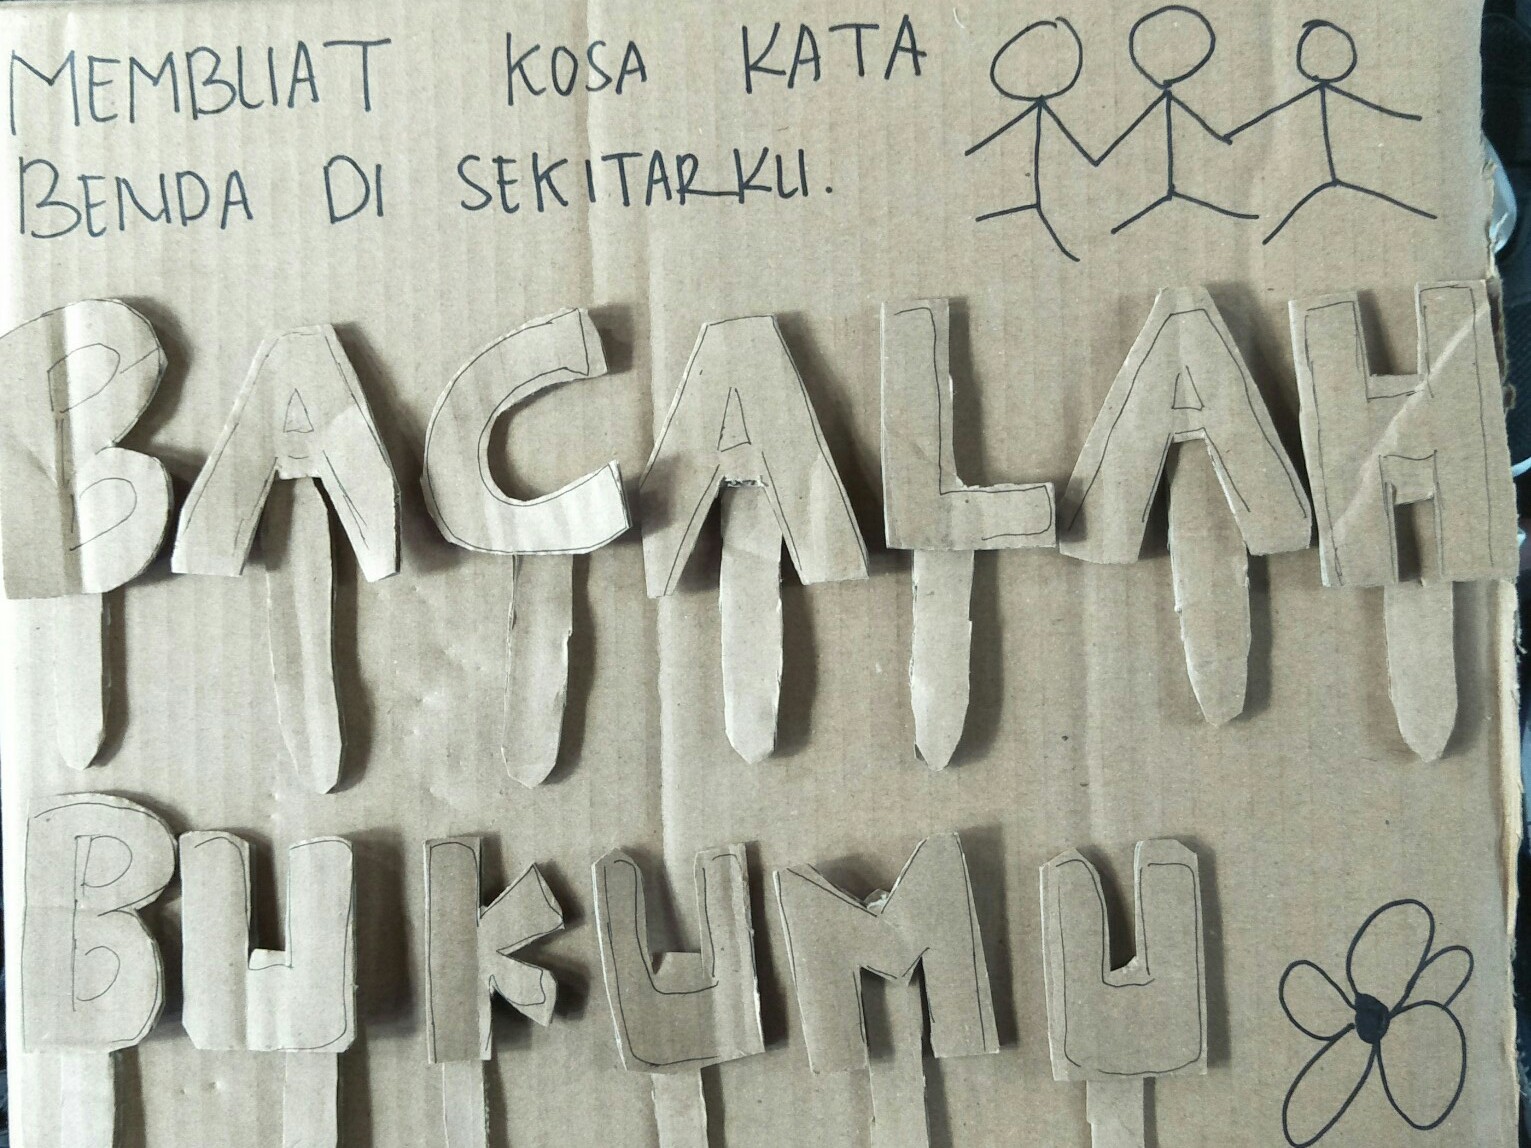 MEMBUAT KOSA KATA
BENDA DI SEKITARKU.
BACALAH
BUKUMU